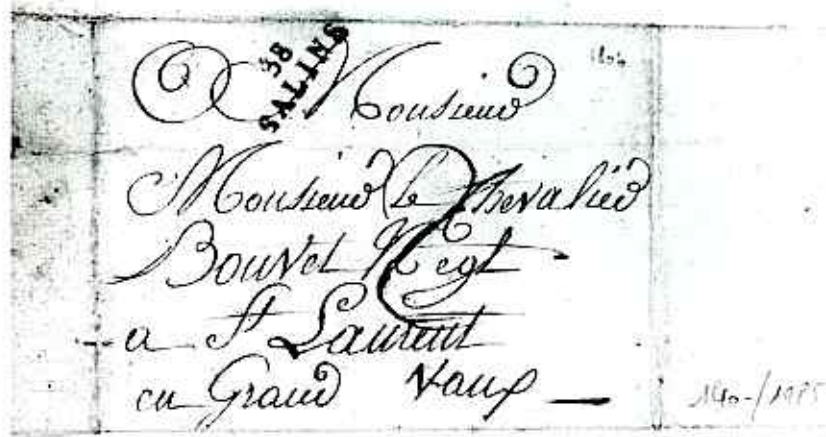 38
SALINS
1804
A Monsieur
Monsieur le Chevalier
Bouvet Negt
a St Laurent
en Grand Vaux
140-/1985